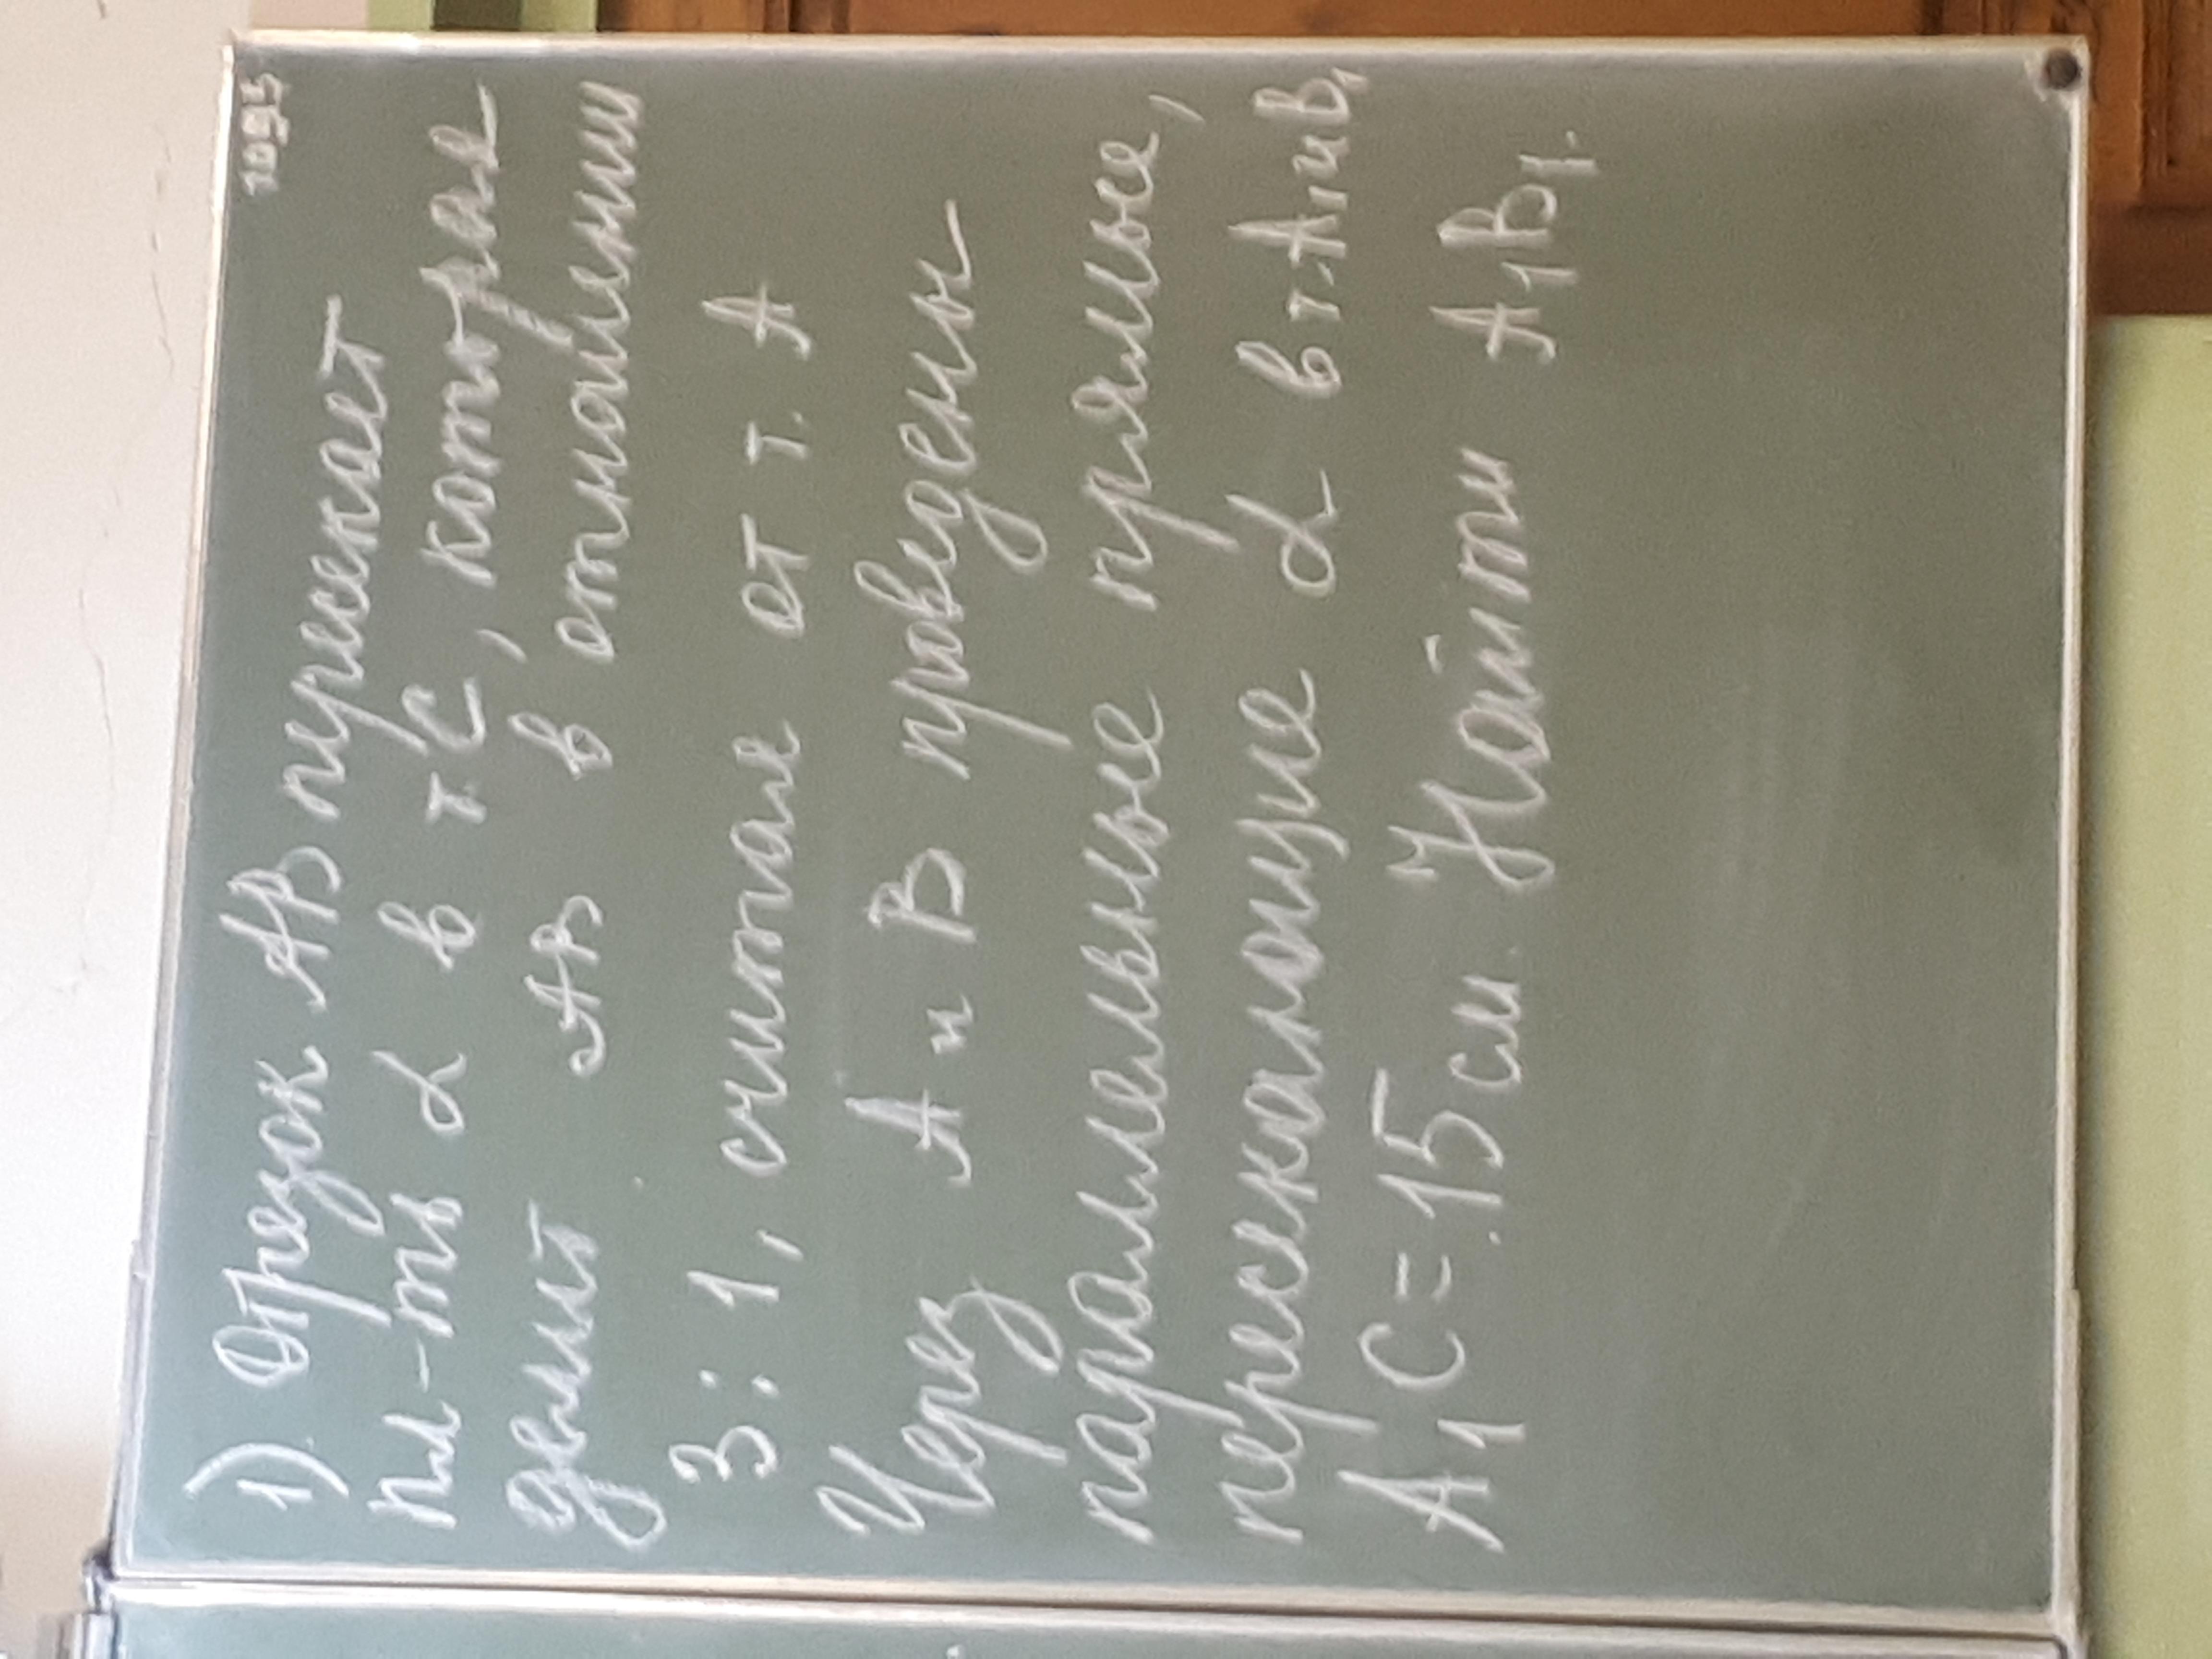 1095
1) Отрезок АВ пересекает
пл-ть α в т. С, которая
делит АВ в отношении
3:1, считая от т. А
Через А и В проведены
параллельные прямые,
пересекающие α в т. А₁ и В₁
А₁С = 15 см. Найти А₁В₁.